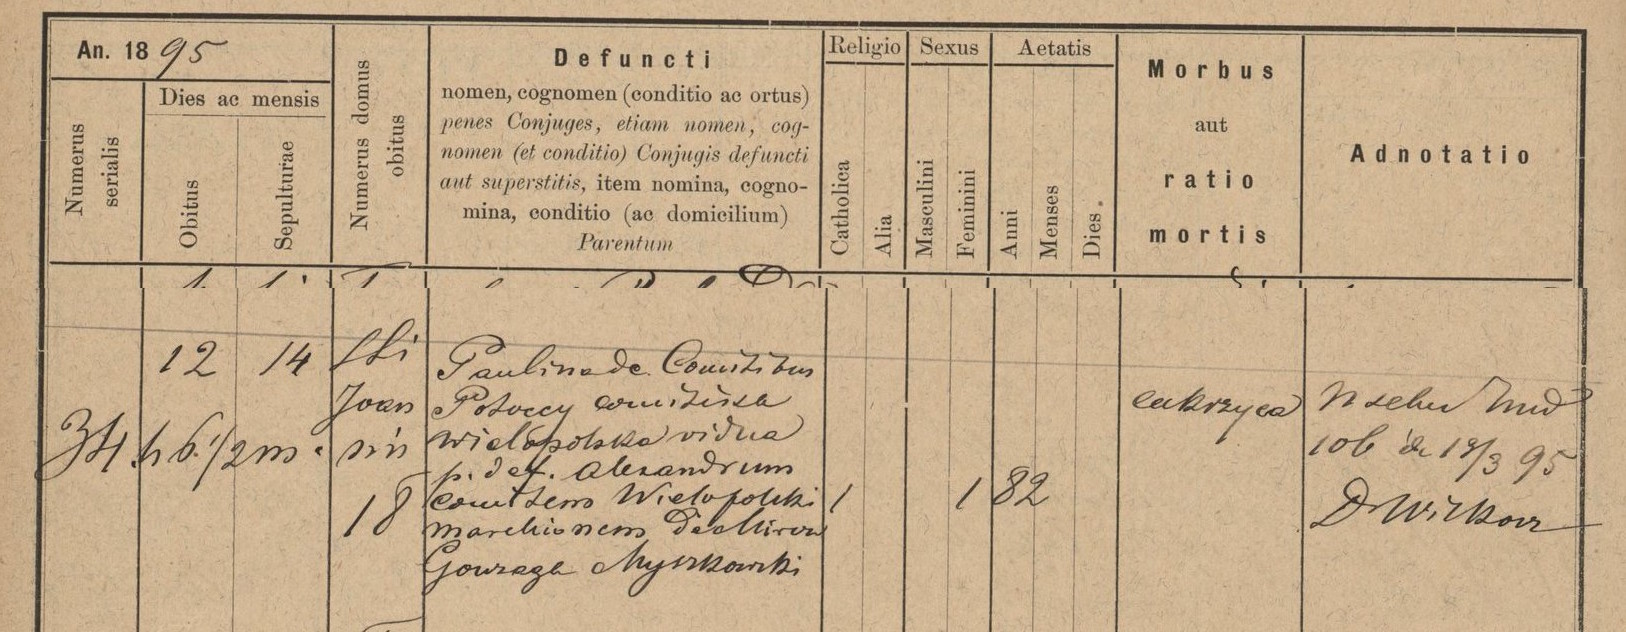 An. 18 95
Numerus serialis
Dies ac mensis
Obitus
Sepulturae
Numerus domus obitus
Defuncti
nomen, cognomen (conditio ac ortus)
penes Conjuges, etiam nomen, cog-
nomen (et conditio) Conjugis defuncti
aut superstitis, item nomina, cogno-
mina, conditio (ac domicilium)
Parentum
Religio
Catholica
Alia
Sexus
Masculini
Feminini
Aetatis
Anni
Menses
Dies.
Morbus
aut
ratio
mortis
Adnotatio
34
12
h 6 1/2 m.
14
Sti
Joan
nis
18
Paulina de Comitibus
Potoccy comitissa
Wielopolska vidua
p. def. Alexandrum
comitem Wielopolski
marchionem De Mirow
Gonzaga Myszkowski
1
1
82
106 19/3 95
Dr Wilkosz